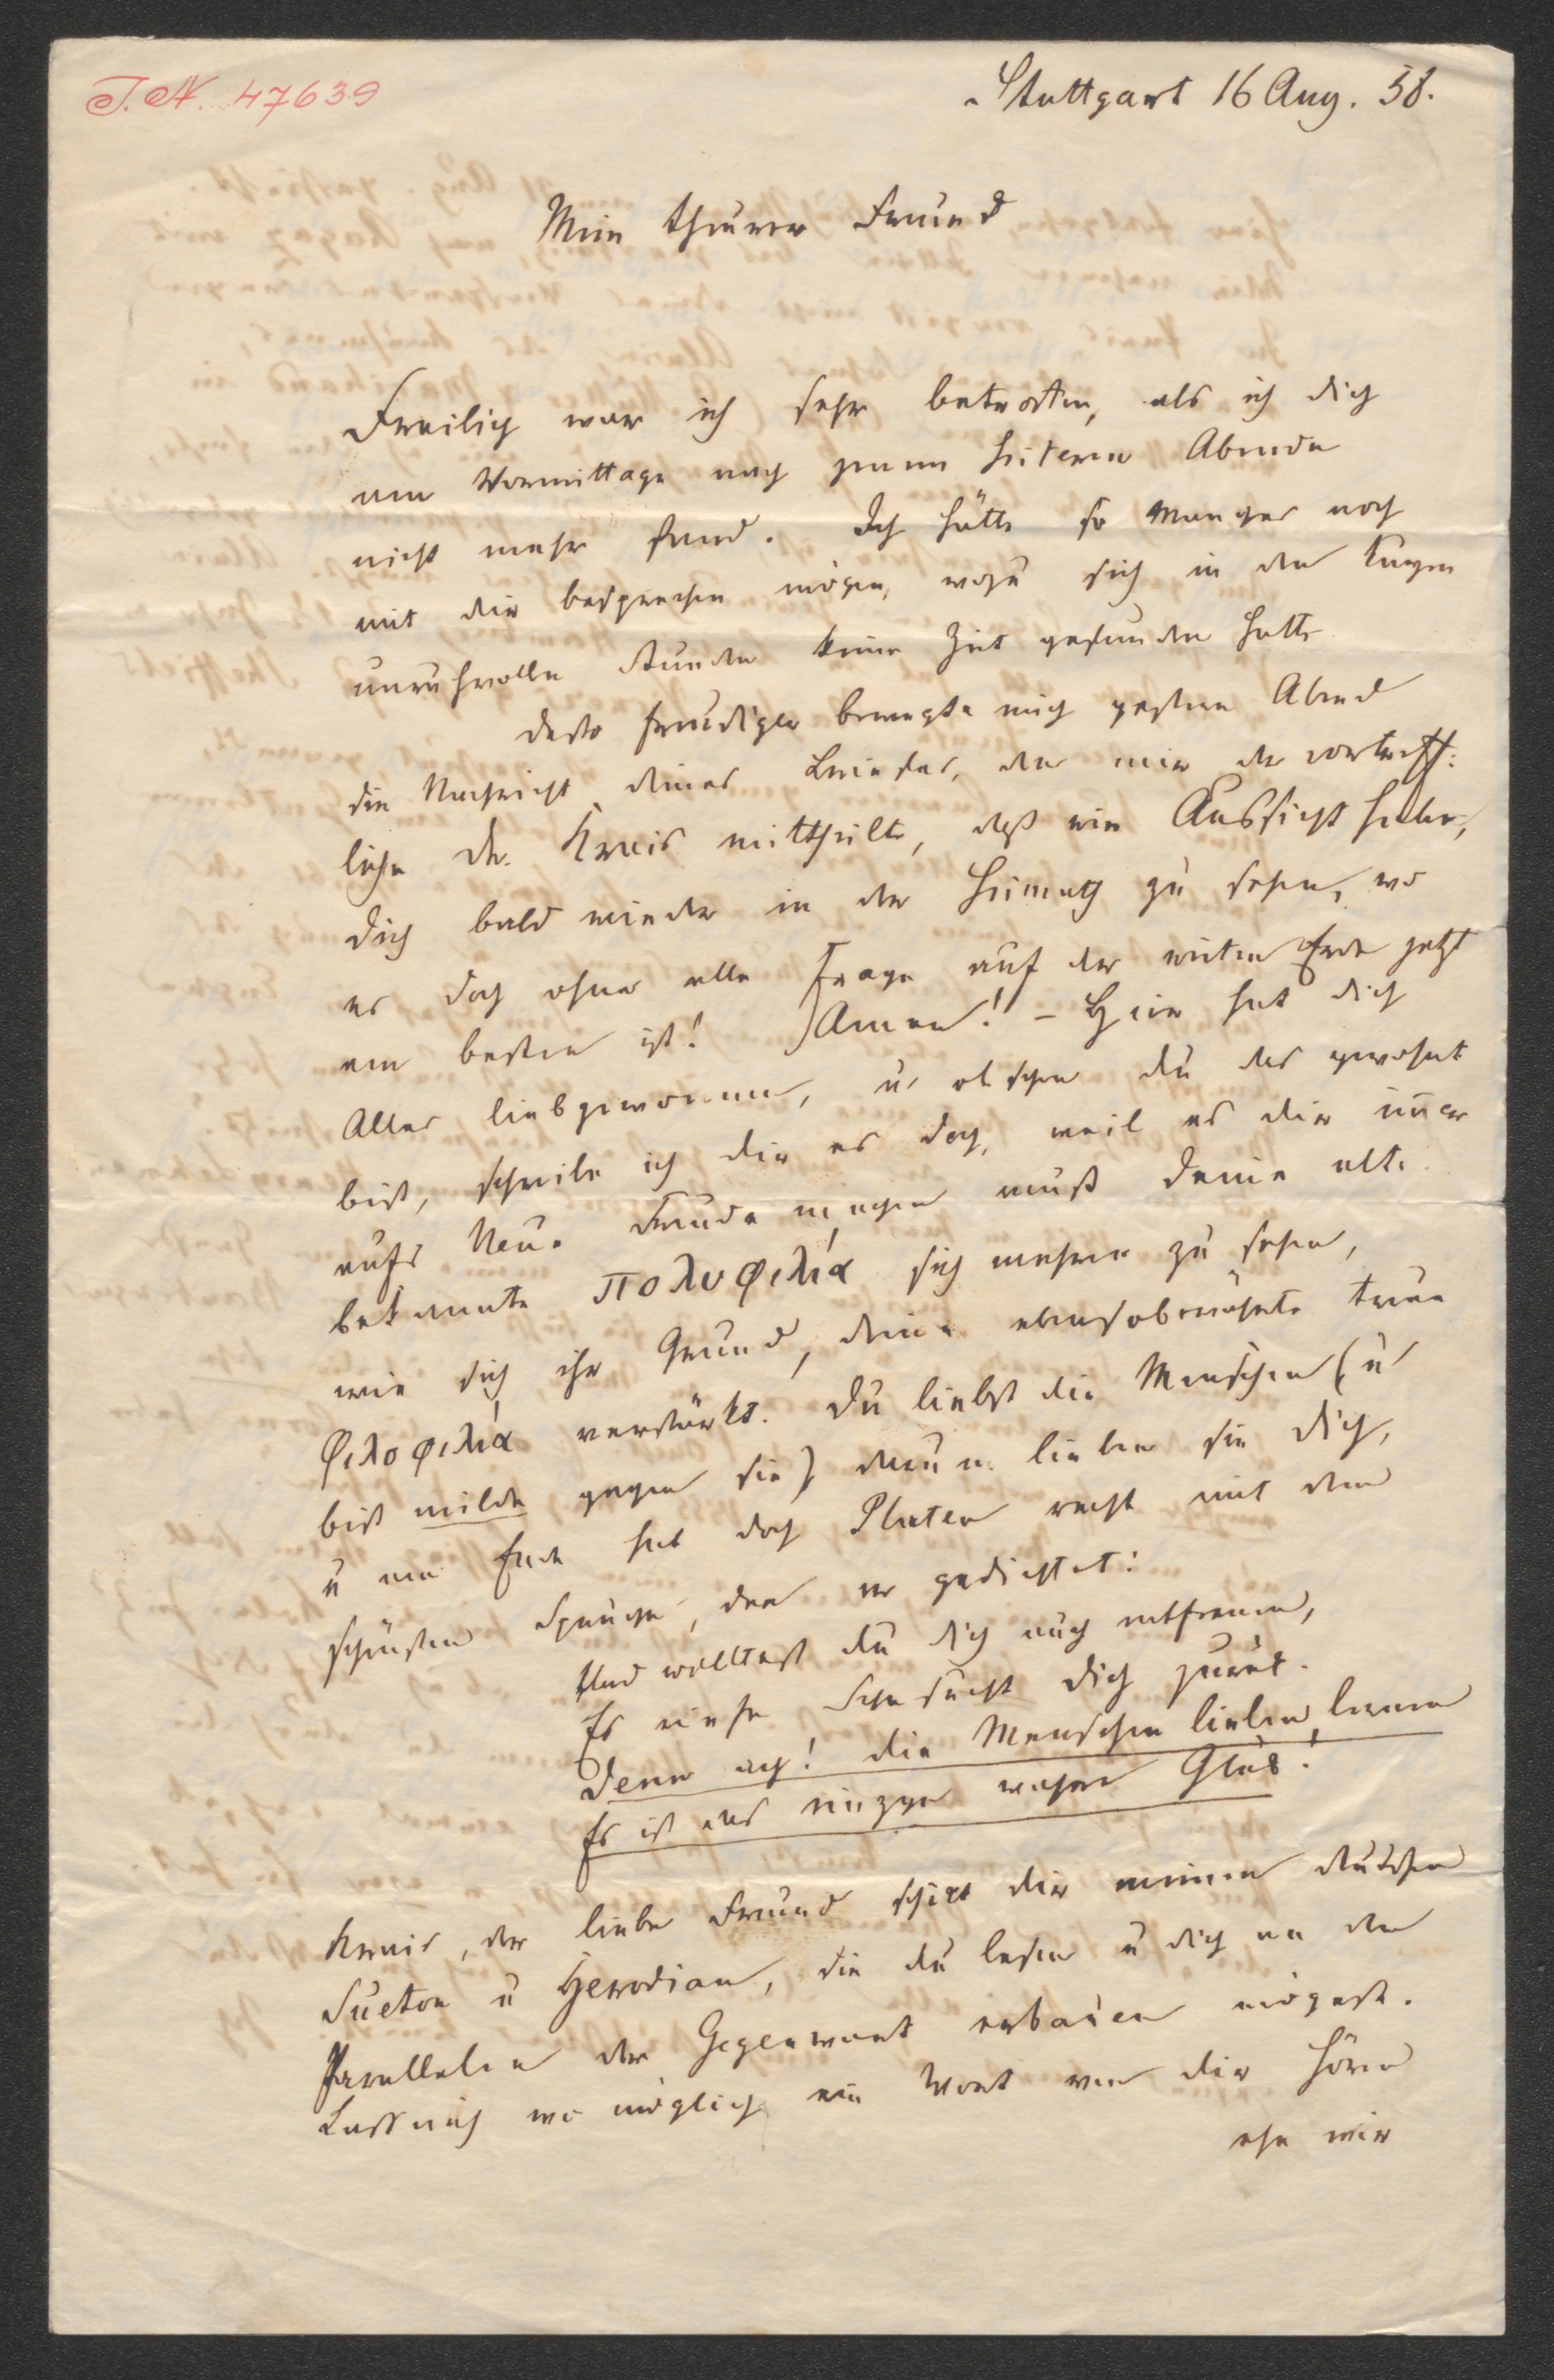 I.N. 47639
Stuttgart 16 Aug. 58.
Mein theurer Freund
Freilich war ich sehr betroffen, als ich dich
am Vormittage nach jenem heitern Abende
nicht mehr fand. Ich hätte so manches noch
mit dir besprechen mögen, wozu sich in den kurzen
unruhvollen Stunden keine Zeit gefunden hatte
Desto freudiger bewegte mich gestern Abend
die Nachricht deines Briefes, den mir der vortreff-
liche Dr. Krais mittheilte, daß wir Aussicht haben,
dich bald wieder in der Heimath zu sehen, wo
es doch ohne alle Frage auf der weiten Erde jetzt
am besten ist! Amen! – Hier hat dich
Alles liebgewonnen, u. obschon du das gewohnt
bist, schreibe ich dir es doch, weil es dir im̅er
aufs Neue Freude machen muß deine alte
bekannte πολυφιλία sich mehren zu sehen,
wie sich ihr Grund, deine ebensobewährte treue
φιλοφιλία verstärkt. Du liebst die Menschen (u
bist milde gegen sie) darum lieben sie dich,
u am Ende hat doch Platen recht mit dem
schönsten Spruche, den er gedichtet:
Und wolltest du dich auch entfernen,
Es ziehe Sehnsucht dich zurük.
Denn ach! die Menschen lieben lernen
Es ist das einzge wahre Glük!
Krais, der liebe Freund schikt dir meinen deutschen
Sueton u Herodian, die du lesen u dich an den
Parallelen der Gegenwart erbauen mögest.
Lass mich wo möglich ein Wort von dir hören
ehe wir